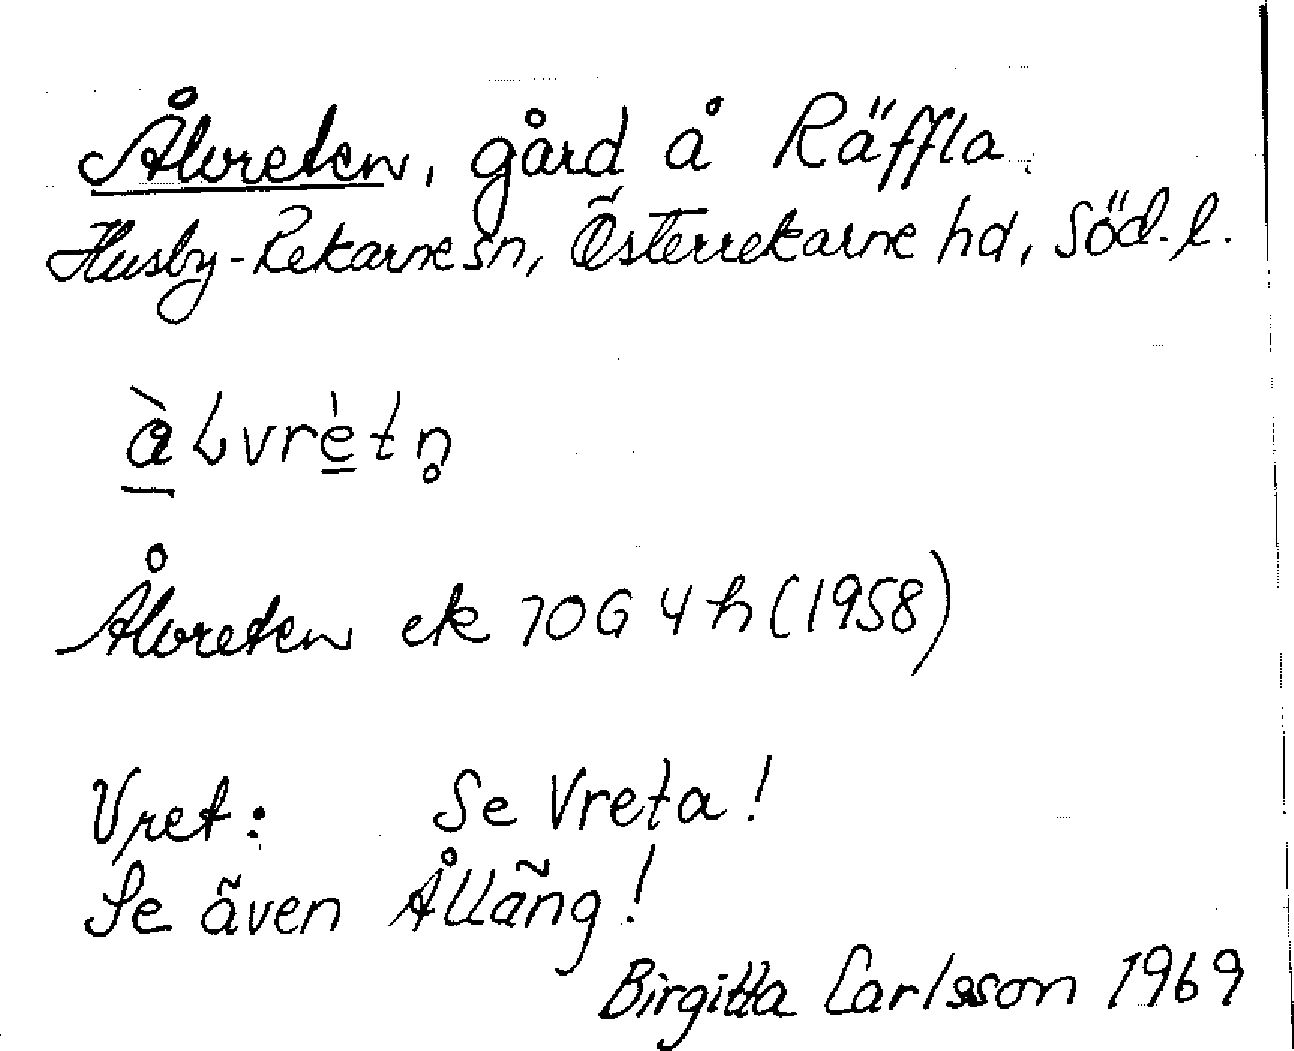 Ålvreten, gård å Räffla
Husby-Rekarne sn, Österrekarne hd, Söd. l.
àLvrètn̥
Ålvreten ek 10G 4h (1958)
Vret: Se Vreta!
Se även Ålläng!
Birgitta Carlsson 1969